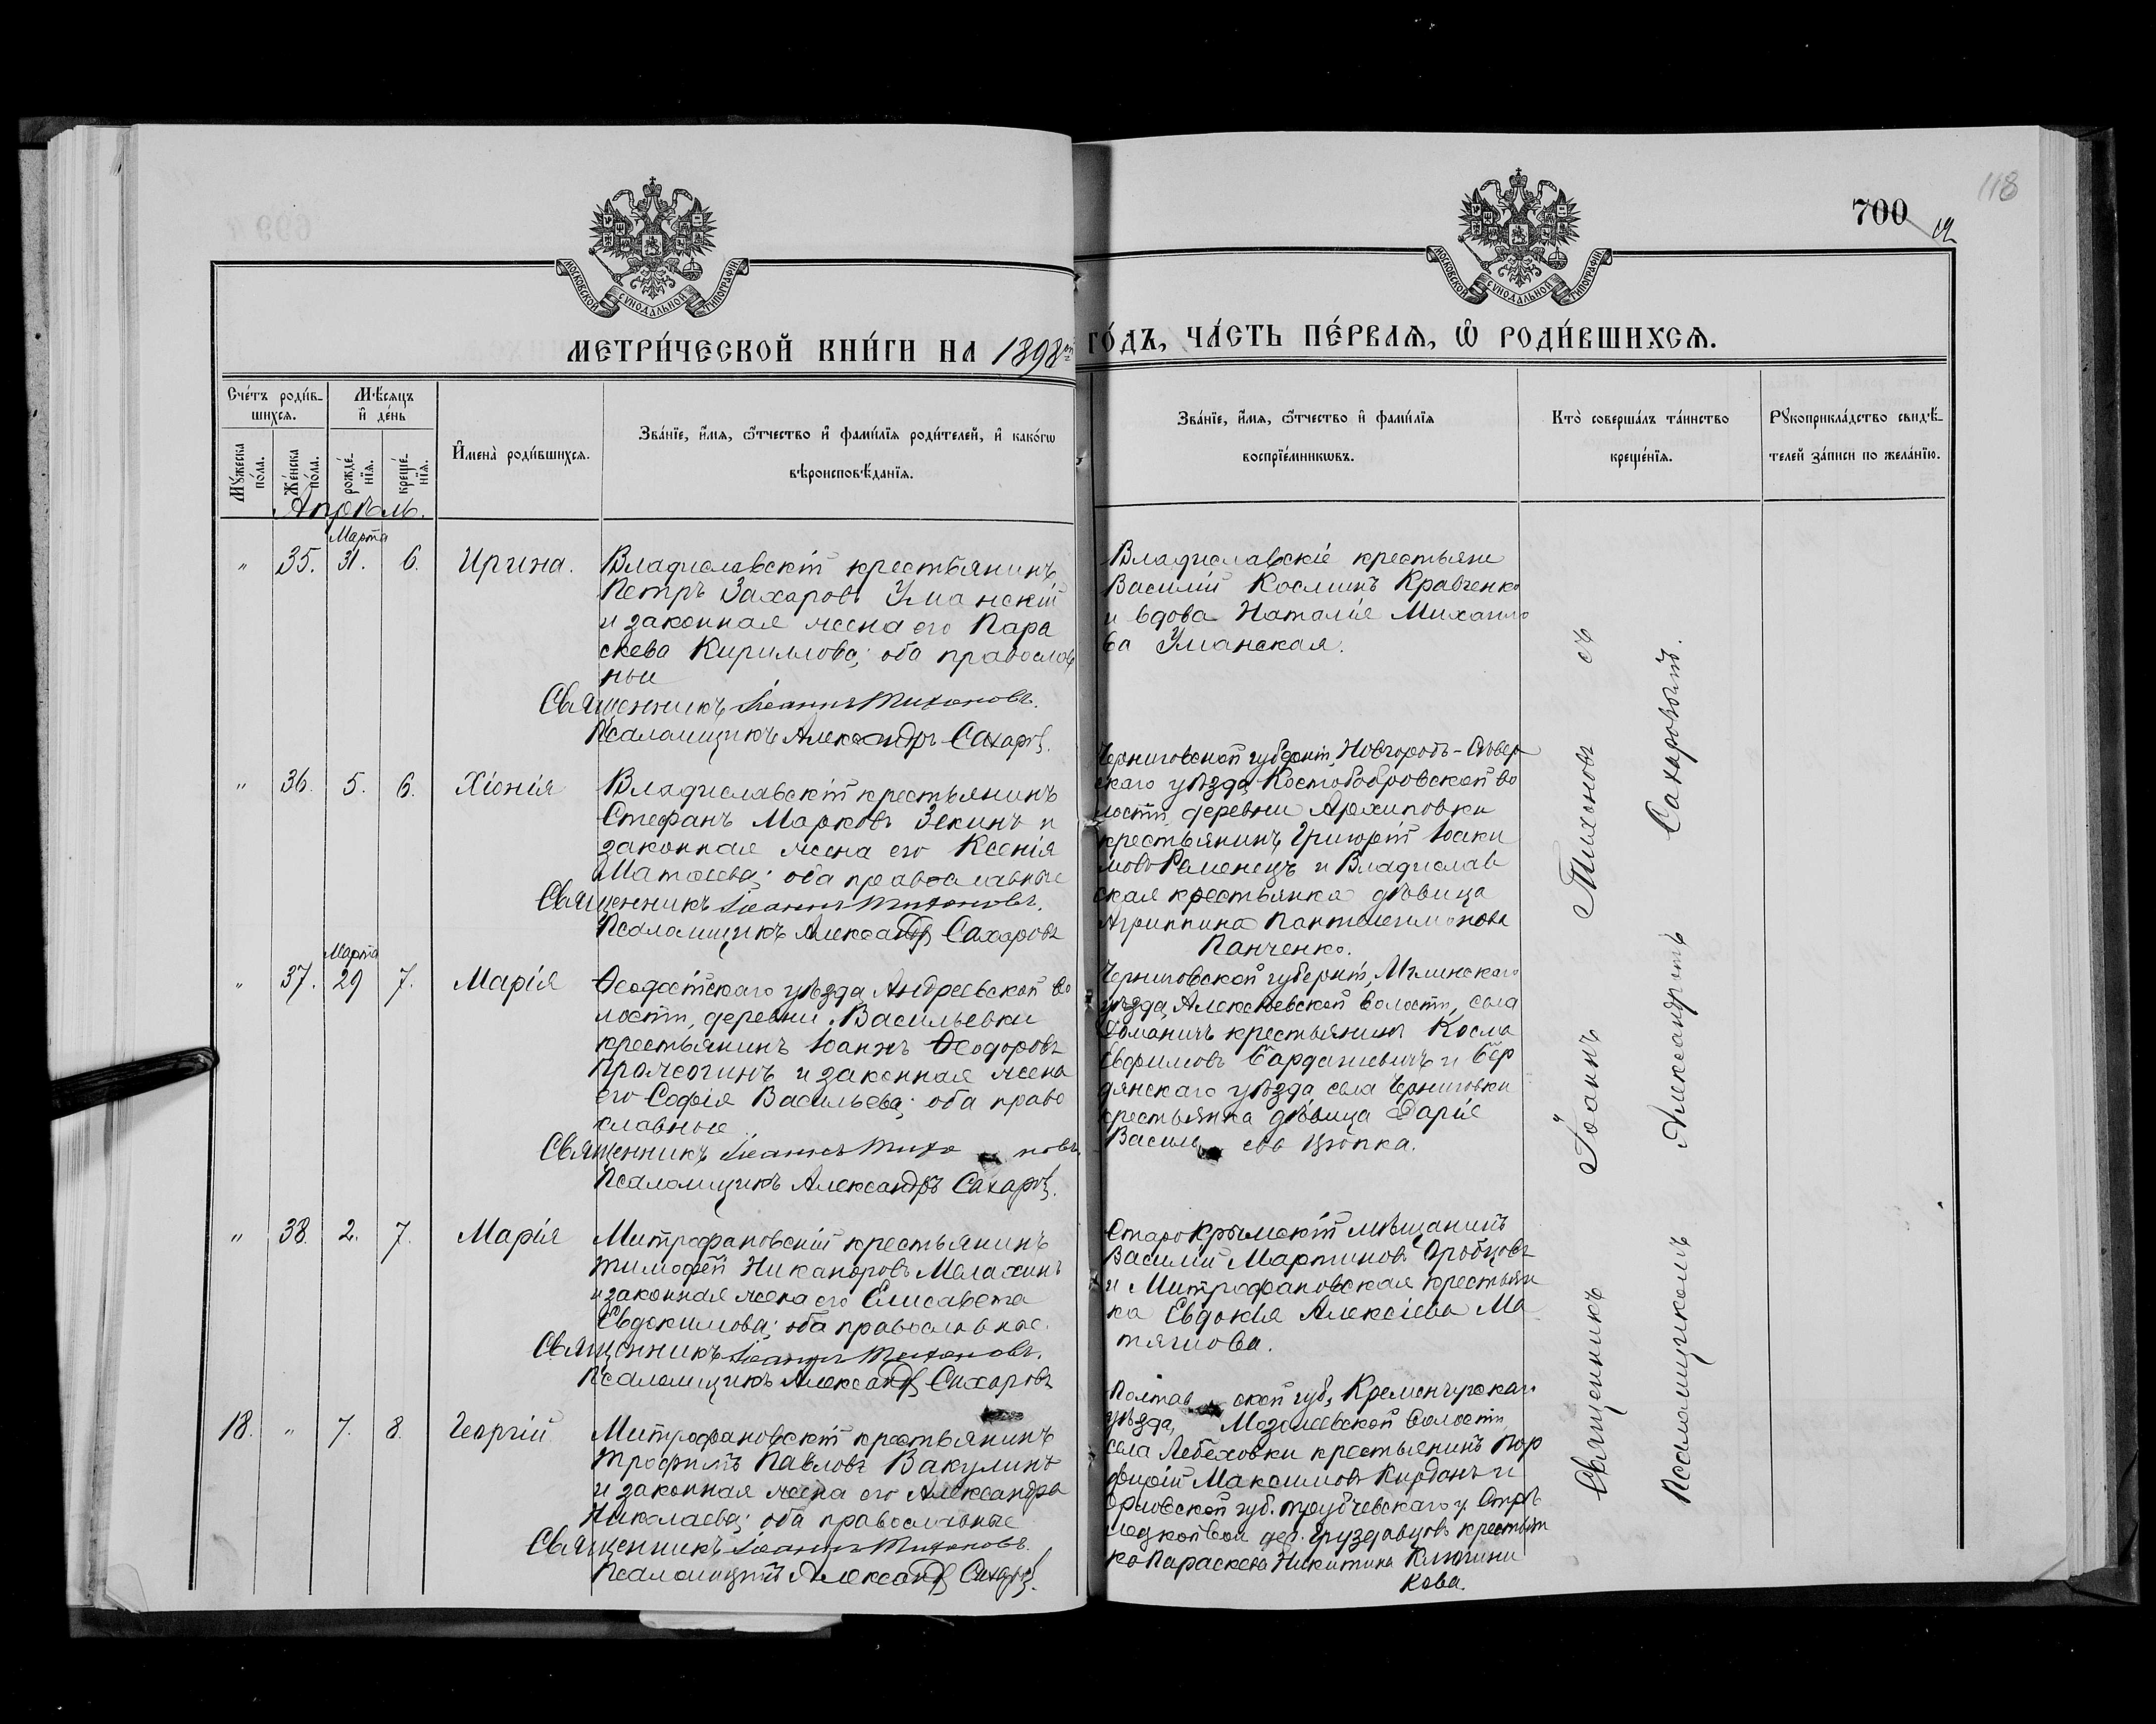 118
700
МОСКОВСКОЙ СѴНОДАЛЬНОЙ ТИПОГРАФІИ
МОСКОВСКОЙ СѴНОДАЛЬНОЙ ТИПОГРАФІИ
МЕТРИ́ЧЕСКОЙ КНИ́ГИ НА 1898й ГО́ДЪ, ЧА́СТЬ ПЕ́РВАѦ, Ѡ҆ РОДИ́ВШИХСѦ.
Сче́тъ роди́в-
шихсѧ.
Мꙋжеска по́ла.
Же́нска по́ла.
Мѣ́сѧцъ и҆ де́нь
рожде́-
нїѧ.
креще́-
нїѧ.
И҆мена̀ роди́вшихсѧ.
Зва́нїе, и҆́мѧ, ѻ҆́тчество и҆ фами́лїѧ роди́телей, и҆ како́гѡ
вѣроисповѣ́данїѧ.
Зва́нїе, и҆́мѧ, ѻ҆́тчество и҆ фами́лїѧ
воспрїе́мникѡвъ.
Кто̀ соверша́лъ та́инство
креще́нїѧ.
Рꙋкоприкла́дство свидѣ́-
телей за́писи по жела́нїю.
Апрѣль.
Марта
" 35. 31. 6. Ирина.
Владиславскій крестьянинъ
Петръ Захаровъ Уманскій
и законная жена его Пара
скева Кириллова; оба православ
ные
Священникъ Іоаннъ Тихоновъ.
Псаломщикъ Александръ Сахаровъ.
Владиславскіе крестьяне
Василій Косминъ Кравченко
и вдова Наталія Михайло
ва Уманская.
" 36. 5. 6. Хіонія
Владиславскій крестьянинъ
Стефанъ Марковъ Зекинъ и
законная жена его Ксенія
Матѳеева; оба православные
Священникъ Іоаннъ Тихоновъ.
Псаломщикъ Александръ Сахаровъ
Черниговской губерніи, Новгородъ-Сѣвер
скаго уѣзда, Костобобровской во
лости, деревни Архиповки
крестьянинъ Григорій Іоаки
мовъ Раменецъ и Владислав
ская крестьянка дѣвица
Агриппина Пантелеимонова
Панченко.
Марта
" 37. 29 7. Марія
Ѳеодосійскаго уѣзда, Андреевской во
лости, деревни Васильевки
крестьянинъ Іоаннъ Ѳеодоровъ
Прожогинъ и законная жена
его Софія Васильева; оба право
славные
Священникъ Іоаннъ Тихо новъ
Псаломщикъ Александръ Сахаровъ.
Черниговской губерніи, Мглинскаго
уѣзда, Алексѣевской волости, села
крестьянинъ Косма
Евфимовъ и Бер
дянскаго уѣзда, села Черниговки
крестьянка дѣвица Дарія
Василь ева Цюпка.
" 38. 2. 7. Марія
Митрофановскій крестьянинъ
Тимоѳей Никаноровъ Малахинъ
и законная жена его Елисавета
Евдокимова; оба православные.
Священникъ Іоаннъ Тихоновъ.
Псаломщикъ Александръ Сахаровъ
Старокрымскій мѣщанинъ
Василій Мартиновъ
и Митрофановская крестьян
ка Евдокія Алексіева Ма
тягиова.
18. " 7. 8. Георгій
Митрофановскій крестьянинъ
Трофимъ Павловъ Вакулинъ
и законная жена его Александра
Николаева; оба православные
Священникъ Іоаннъ Тихоновъ.
Псаломщикъ Александръ Сахаровъ.
Полтав ской губ., Кременчугскаго
уѣзда, Мозолеевской волости
села Лебеховки крестьянинъ Пор
фирій Максимовъ и
Орловской губ. Трубчевскаго у.
дер. Груздовцовъ крестьян
ка Параскева Никитина Ключни
кова.
Священникъ Іоаннъ Тихоновъ съ
Псаломщикомъ Александромъ Сахаровымъ.